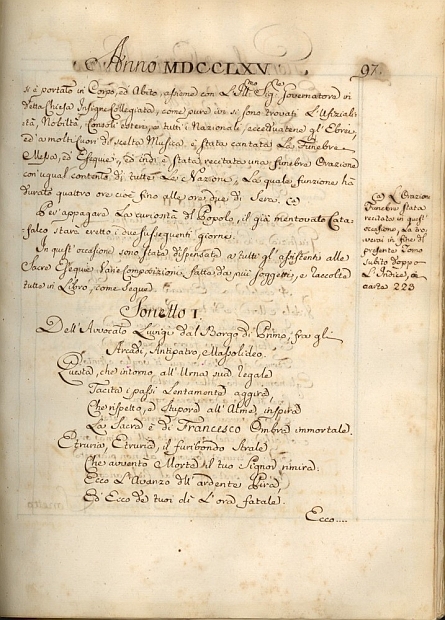 Anno MDCCLXV
97.
si è portato in Corpo, ed Abito, assieme con L'Ill:mo Sig:re Governatore in
detta Chiesa Insigne Collegiata, come pure vi si sono trovati L'Ufizialità,
Nobiltà, Consoli esteri, e tutti i Nazionali, eccettuatene gl'Ebrei,
ed a molti suoni di scelta Musica, è stata cantata La Funebre
Messa, ed Esequie, ed indi è stata recitata una funebre Orazione
con ugual contento di tutte Le Nazioni, La quale funzione ha
durato quattro ore cioè fino alle ore due di Sera. (a)
Per appagare La curiosità di Popolo, il già mentovato Catafalco
starà eretto i due susseguenti giorni.
In quest'occasione sono stata dispensata a tutti gl'assistenti alle
Sacre Esequie Varie Composizioni fatte da più soggetti, e raccolte
tutte in Libro, come segue.
(a) L'Orazione
Funebre stata
recitata in quest'
occasione, La tro-
verai in fine di
presente Tomo
subito doppo
L'Indice, a
carte 223
Sonetto I.
Dell'Avvocato Luigi dal Borgo di Primo, fra gli
Arcadi, Antipatro, Massolideo.
Questa, che intorno, all'Urna sua legale
Tacita i passi Lentamente aggira,
Che rispetto, e Stupore all'Alme, inspira
La Sacra è di Francesco Ombra immortale.
Etruria, Etruria, il furibondo Strale,
Che avventò Morte, il tuo Signor rimira:
Ecco L'Avanzo dell'ardente Pira,
Ed Ecco de tuoi dì L'ora fatale.
Ecco....